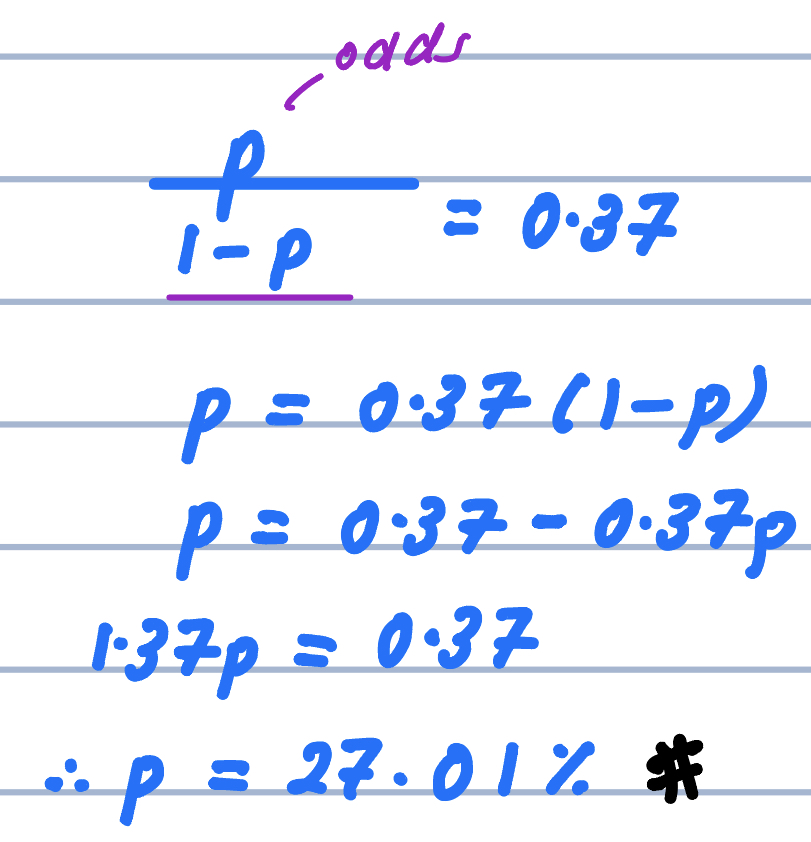 odds
p
1-p = 0.37
p = 0.37(1-p)
p = 0.37 - 0.37p
1.37p = 0.37
∴ p = 27.01% #